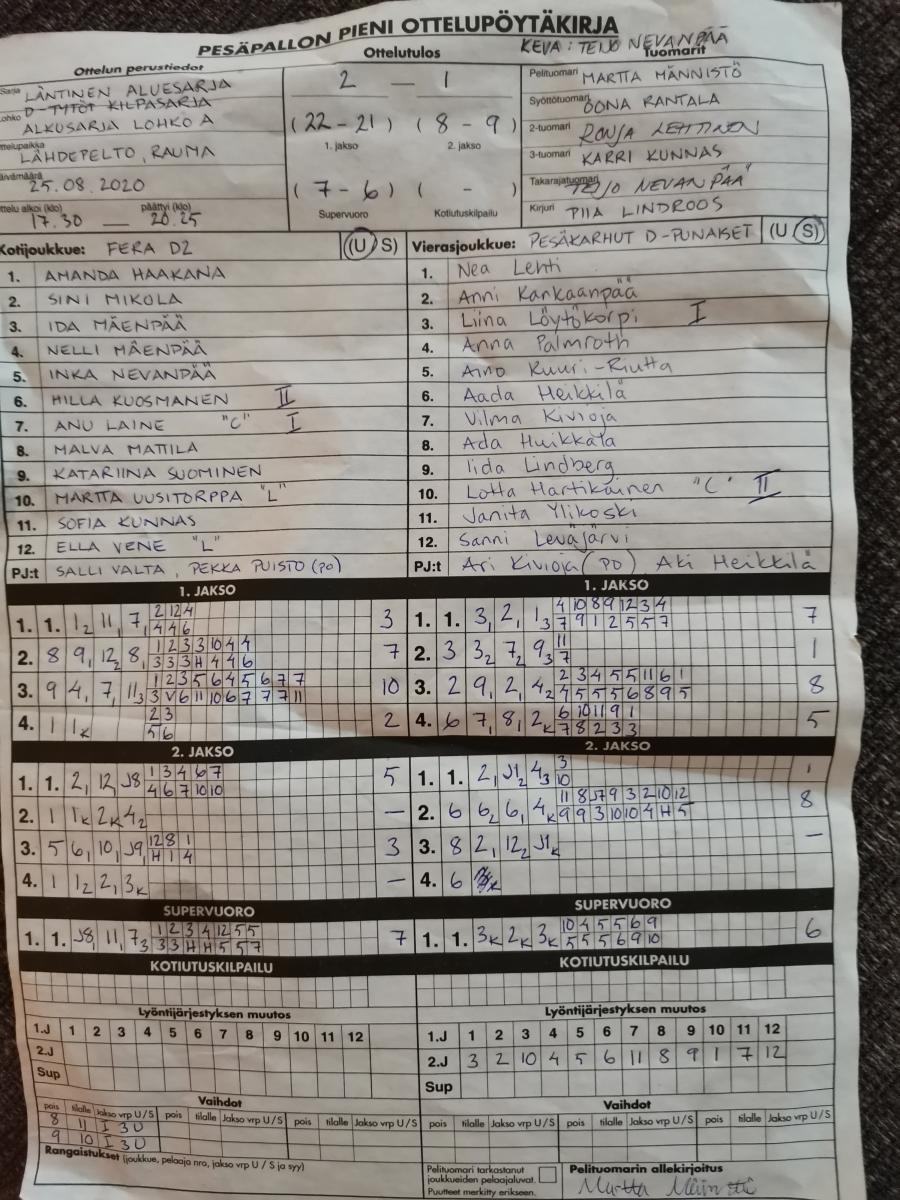 PESÄPALLON PIENI OTTELUPÖYTÄKIRJA
KEVA: TEIJO NEVANPÄÄ
Ottelun perustiedot
Ottelutulos
Tuomarit
Sarja LÄNTINEN ALUESARJA
D-TYTÖT KILPASARJA
Lohko ALKUSARJA LOHKO A
LÄHDEPELTO, RAUMA
25.08.2020
Ottelu alkoi (klo) päättyi (klo)
17.30 — 20.25
2 — 1
(22 - 21) (8 - 9)
1. jakso 2. jakso
(7 - 6) ( - )
Supervuoro Kotiutuskilpailu
Pelituomari MARTTA MÄNNISTÖ
Syöttötuomari OONA RANTALA
2-tuomari RONJA LEHTINEN
3-tuomari KARRI KUNNAS
Takarajatuomari TEIJO NEVANPÄÄ
Kirjuri PIIA LINDROOS
Kotijoukkue: FERA D2 (U S)
1. AMANDA HAAKANA
2. SINI MIKOLA
3. IDA MÄENPÄÄ
4. NELLI MÄENPÄÄ
5. INKA NEVANPÄÄ
6. HILLA KUOSMANEN II
7. ANU LAINE "C" I
8. MALVA MATTILA
9. KATARIINA SUOMINEN
10. MARTTA UUSITORPPA "L"
11. SOFIA KUNNAS
12. ELLA VENE "L"
PJ:t SALLI VALTA, PEKKA PUISTO (PO)
Vierasjoukkue: PESÄKARHUT D-PUNAISET (U S)
1. Nea Lehti
2. Anni Kankaanpää
3. Liina Löytökorpi I
4. Anna Palmroth
5. Aino Kuuri-Riutta
6. Aada Heikkilä
7. Vilma Kivioja
8. Ada Huikkala
9. Iida Lindberg
10. Lotta Hartikainen "C" II
11. Janita Ylikoski
12. Sanni Leväjärvi
PJ:t Ari Kivioja (PO) Aki Heikkilä
1. JAKSO
1. 1. 1₂ 11, 7,
2 12 4
4 4 6
3
2. 8 9, 12₂ 8,
1 2 3 3 10 4 4
3 3 3 H 4 4 6
7
3. 9 4, 7, 11₃
1 2 3 5 6 4 5 6 7 7
3 V 6 11 10 6 7 7 7 11
10
4. 1 1ₖ
2 3
5 6
2
2. JAKSO
1. 1. 2, 12, J8
1 3 4 6 7
4 6 7 10 10
5
2. 1 1ₖ 2ₖ 4₂
—
3. 5 6, 10, J9,
12 8 1
H 1 4
3
4. 1 1₂ 2, 3ₖ
—
SUPERVUORO
1. 1. J8, 11, 7₃
1 2 3 4 12 5 5
3 3 H H 5 5 7
7
KOTIUTUSKILPAILU
1. JAKSO
1. 1. 3, 2, 1₃
4 10 8 9 12 3 4
7 9 1 2 5 5 7
7
2. 3 3₂ 7₂ 9₃
11
7
1
3. 2 9, 2, 4₂
2 3 4 5 5 11 6 1
4 5 5 5 6 8 9 5
8
4. 6 7, 8, 2ₖ
6 10 11 9 1
7 8 2 3 3
5
2. JAKSO
1. 1. 2, J1₂ 4₃
3
10
1
2. 6 6₂ 6, 4ₖ
11 8 J7 9 3 2 10 12
9 9 3 10 10 4 H 5
8
3. 8 2, 12₂ J1ₖ
—
4. 6
SUPERVUORO
1. 1. 3ₖ 2ₖ 3ₖ
10 4 5 5 6 9
5 5 5 6 9 10
6
KOTIUTUSKILPAILU
Lyöntijärjestyksen muutos
1.J 1 2 3 4 5 6 7 8 9 10 11 12
2.J
Sup
Lyöntijärjestyksen muutos
1.J 1 2 3 4 5 6 7 8 9 10 11 12
2.J 3 2 10 4 5 6 11 8 9 1 7 12
Sup
Vaihdot
pois tilalle Jakso vrp U/S pois tilalle Jakso vrp U/S pois tilalle Jakso vrp U/S
8 11 I 3 U
9 10 I 3 U
Vaihdot
pois tilalle Jakso vrp U/S pois tilalle Jakso vrp U/S pois tilalle Jakso vrp U/S
Rangaistukset (joukkue, pelaaja nro, jakso vrp U / S ja syy)
Pelituomari tarkastanut
joukkueiden pelaajaluvat.
Puutteet merkitty erikseen.
Pelituomarin allekirjoitus
Martta Männistö